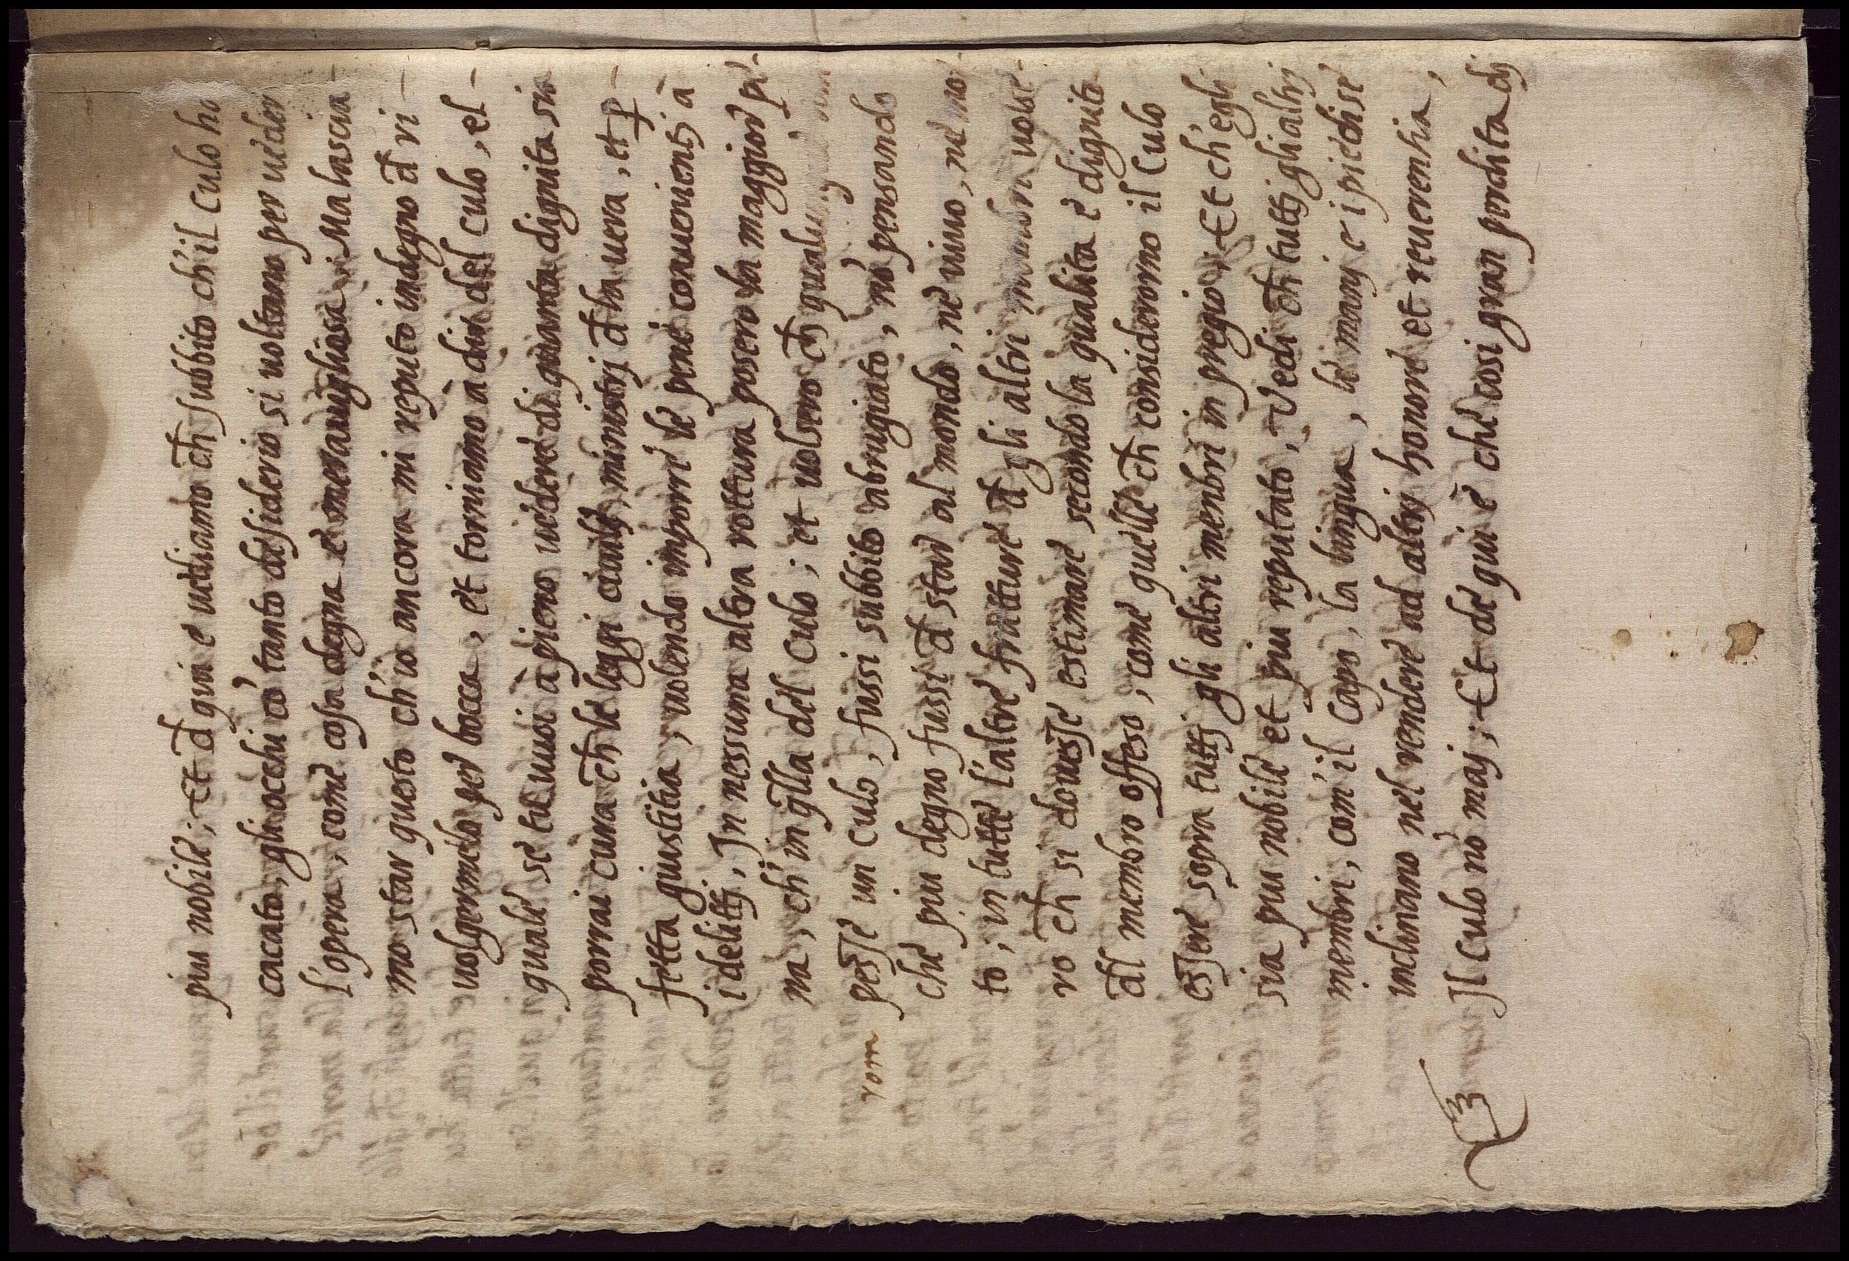 piu nobile; Et d̄ quia e uediamo ch̄ subbito ch'il culo ha
caccato, gli occhi cō tanto desiderio si uoltano per ueder
l'opera, come cosa degna e merauigliosa. Ma lascia-
mo star questo ch'io ancora mi reputo indegno d̄ ri-
uolgermelo per bocca, et torniamo à dir del culo, el-
quale se tu uuoi à pieno uedere di quanta dignita sia
porrai cura ch̄ le leggi ciuili, ministrj d̄ la uera, et ꝑ-
fetta giustitia, uolendo imporre le pene conuenientj à
i delittj, In nessuna altra rottura posero la maggior pe-
na, ch' in q̄lla del culo; et uolsero ch̄ qualu
rom pesse un culo, fussi subbito abrugiato, nō pensando
che piu degno fussi d̄ star al mondo, ne uiuo, ne mo
to, in tutte l'altre fratture d̄ gli altri membra uolse-
ro ch̄ si douesse estimare secondo la qualita e dignita
d̄l membro offeso, come quelle ch̄ considerorno il Culo
essere sopra tuttj gli altri menbri in pregio, Et ch'egli
sia piu nobile et piu reputato, Vedi ch̄ tuttj gli altrj
membri, com'il Capo, la lingua, le manj e i piedi se
inclinano nel rendere ad altrj honore et reuerentia,
Il culo nō maj; Et de qui è che cosi gran perdita dj